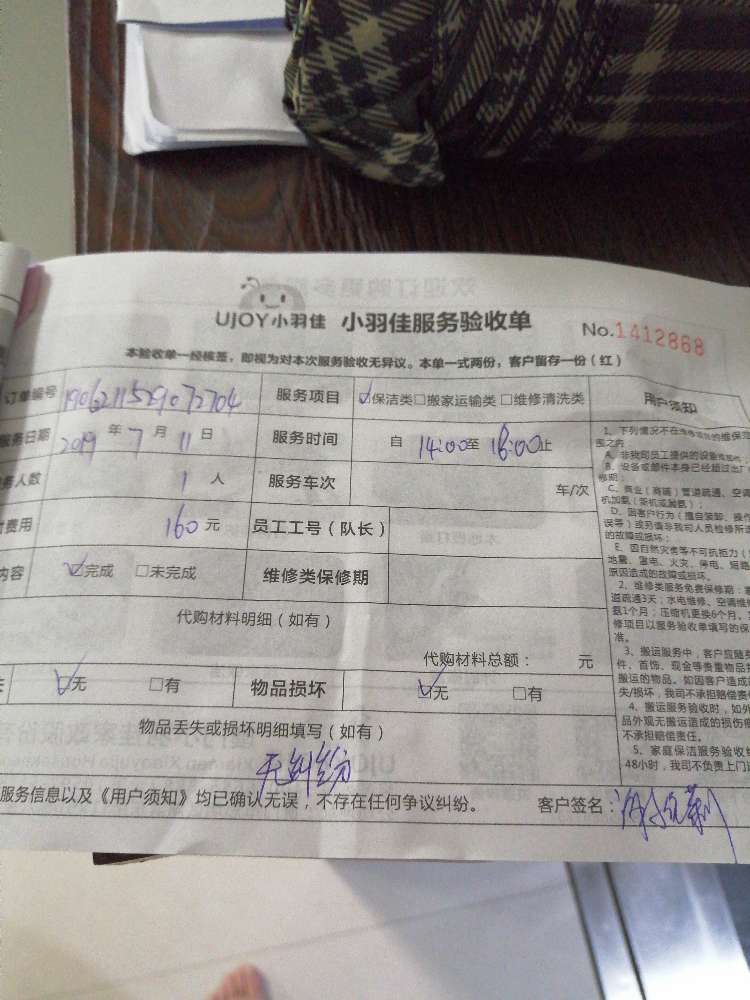 UJOY小羽佳 小羽佳服务验收单 No.1412868
本验收单一经核签，即视为对本次服务验收无异议。本单一式两份，客户留存一份（红）
订单编号 服务项目 ☑保洁类□搬家运输类□维修清洗类 用户须知
服务日期 2019年7月11日 服务时间 自14:00至18:00止
务人数 1人 服务车次 车/次
费用 160元 员工工号（队长）
内容 ☑完成 □未完成 维修类保修期
代购材料明细（如有）
代购材料总额： 元
☑无 □有 物品损坏 ☑无 □有
物品丢失或损坏明细填写（如有）
无纠纷
服务信息以及《用户须知》均已确认无误，不存在任何争议纠纷。 客户签名：
1、下列情况不在
围之内
A、非我司员工提供的设备
B、设备或部件本身已经超过出厂
修期；
C、商业（商铺）管道疏通、空调
机加氨（茶机或漏氨）
D、因客户行为（擅自装卸、操作
误等）或另请非我司人员检修所造
的故障或损坏；
E、因自然灾害等不可抗拒力（
地震、雷电、火灾、停电、短路
原因造成的故障或损坏。
2、维修类服务免费保修期：
道疏通3天；水电维修、空调维
氨1个月；压缩机更换6个月。
修项目以服务验收单填写的保
准。
3、搬运服务中，客户应随身
件、首饰、现金等贵重物品
搬运的物品。如因客户造成
失/损坏，我司不承担赔偿责
4、搬运服务验收时，如外
品外观无搬运造成的损伤
不承担赔偿责任。
5、家庭保洁服务验收
48小时，我司不负责上门